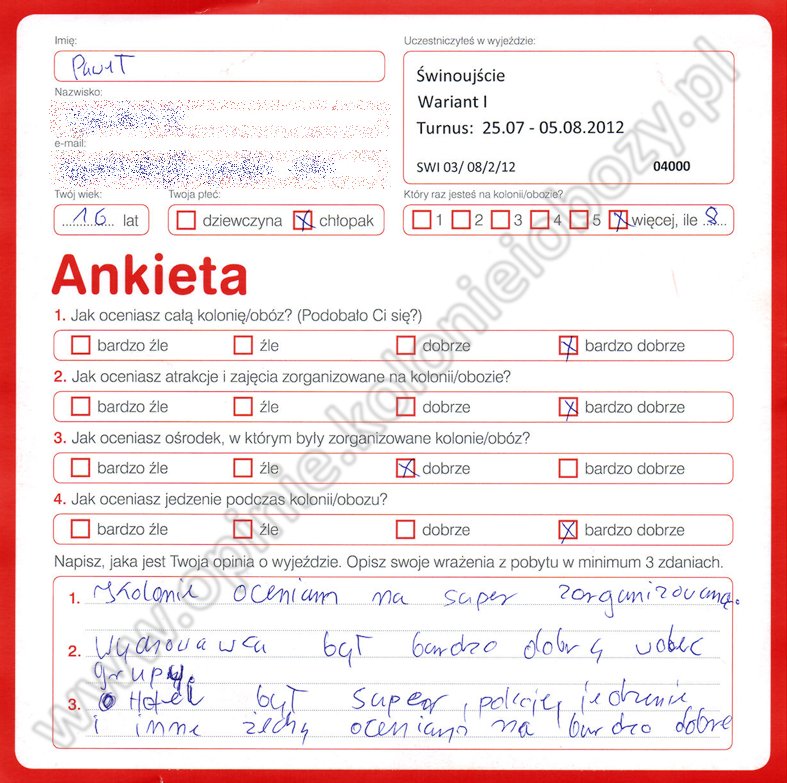 Imię:
Paweł
Uczestniczyłeś w wyjeździe:
Świnoujście
Wariant I
Turnus: 25.07 - 05.08.2012
SWI 03/ 08/2/12 04000
Nazwisko:
e-mail:
Twój wiek:
16 lat
Twoja płeć:
dziewczyna chłopak
Który raz jesteś na kolonii/obozie?
1 2 3 4 5 więcej, ile 8
Ankieta
1. Jak oceniasz całą kolonię/obóz? (Podobało Ci się?)
bardzo źle źle dobrze bardzo dobrze
2. Jak oceniasz atrakcje i zajęcia zorganizowane na kolonii/obozie?
bardzo źle źle dobrze bardzo dobrze
3. Jak oceniasz ośrodek, w którym były zorganizowane kolonie/obóz?
bardzo źle źle dobrze bardzo dobrze
4. Jak oceniasz jedzenie podczas kolonii/obozu?
bardzo źle źle dobrze bardzo dobrze
Napisz, jaka jest Twoja opinia o wyjeździe. Opisz swoje wrażenia z pobytu w minimum 3 zdaniach.
1. Kolonie oceniam na super zorganizowaną.
2. Wychowawca był bardzo dobry wobec
grupy.
3. Hotel był super, pokoje, jedzenie
i inne oceniam na bardzo dobre
www.opinie.kolonieiobozy.pl